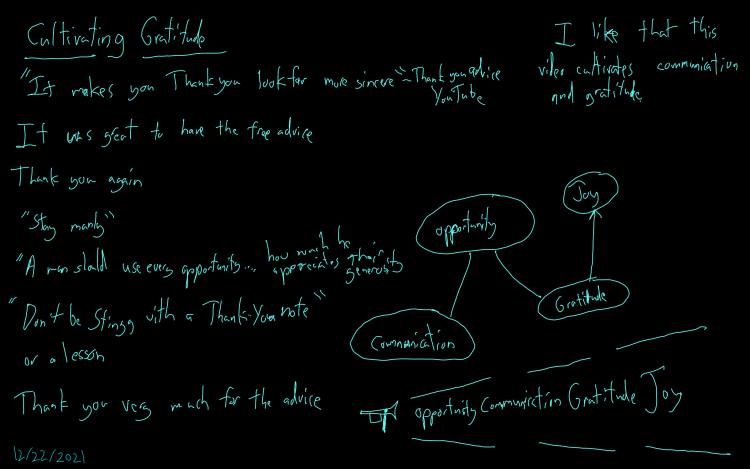 Cultivating Gratitude
"It makes you Thank you look far more sincere" ~ Thank you advice
YouTube
It was great to have the free advice
Thank you again
"Stay manly"
"A man should use every opportunity... how much he
appreciates their
generosity
"Don't be Stingy with a Thank-You note"
or a lesson
Thank you very much for the advice
12/22/2021
I like that this
video cultivates communication
and gratitude
Joy
Opportunity
Gratitude
Communication
opportunity Communication Gratitude Joy